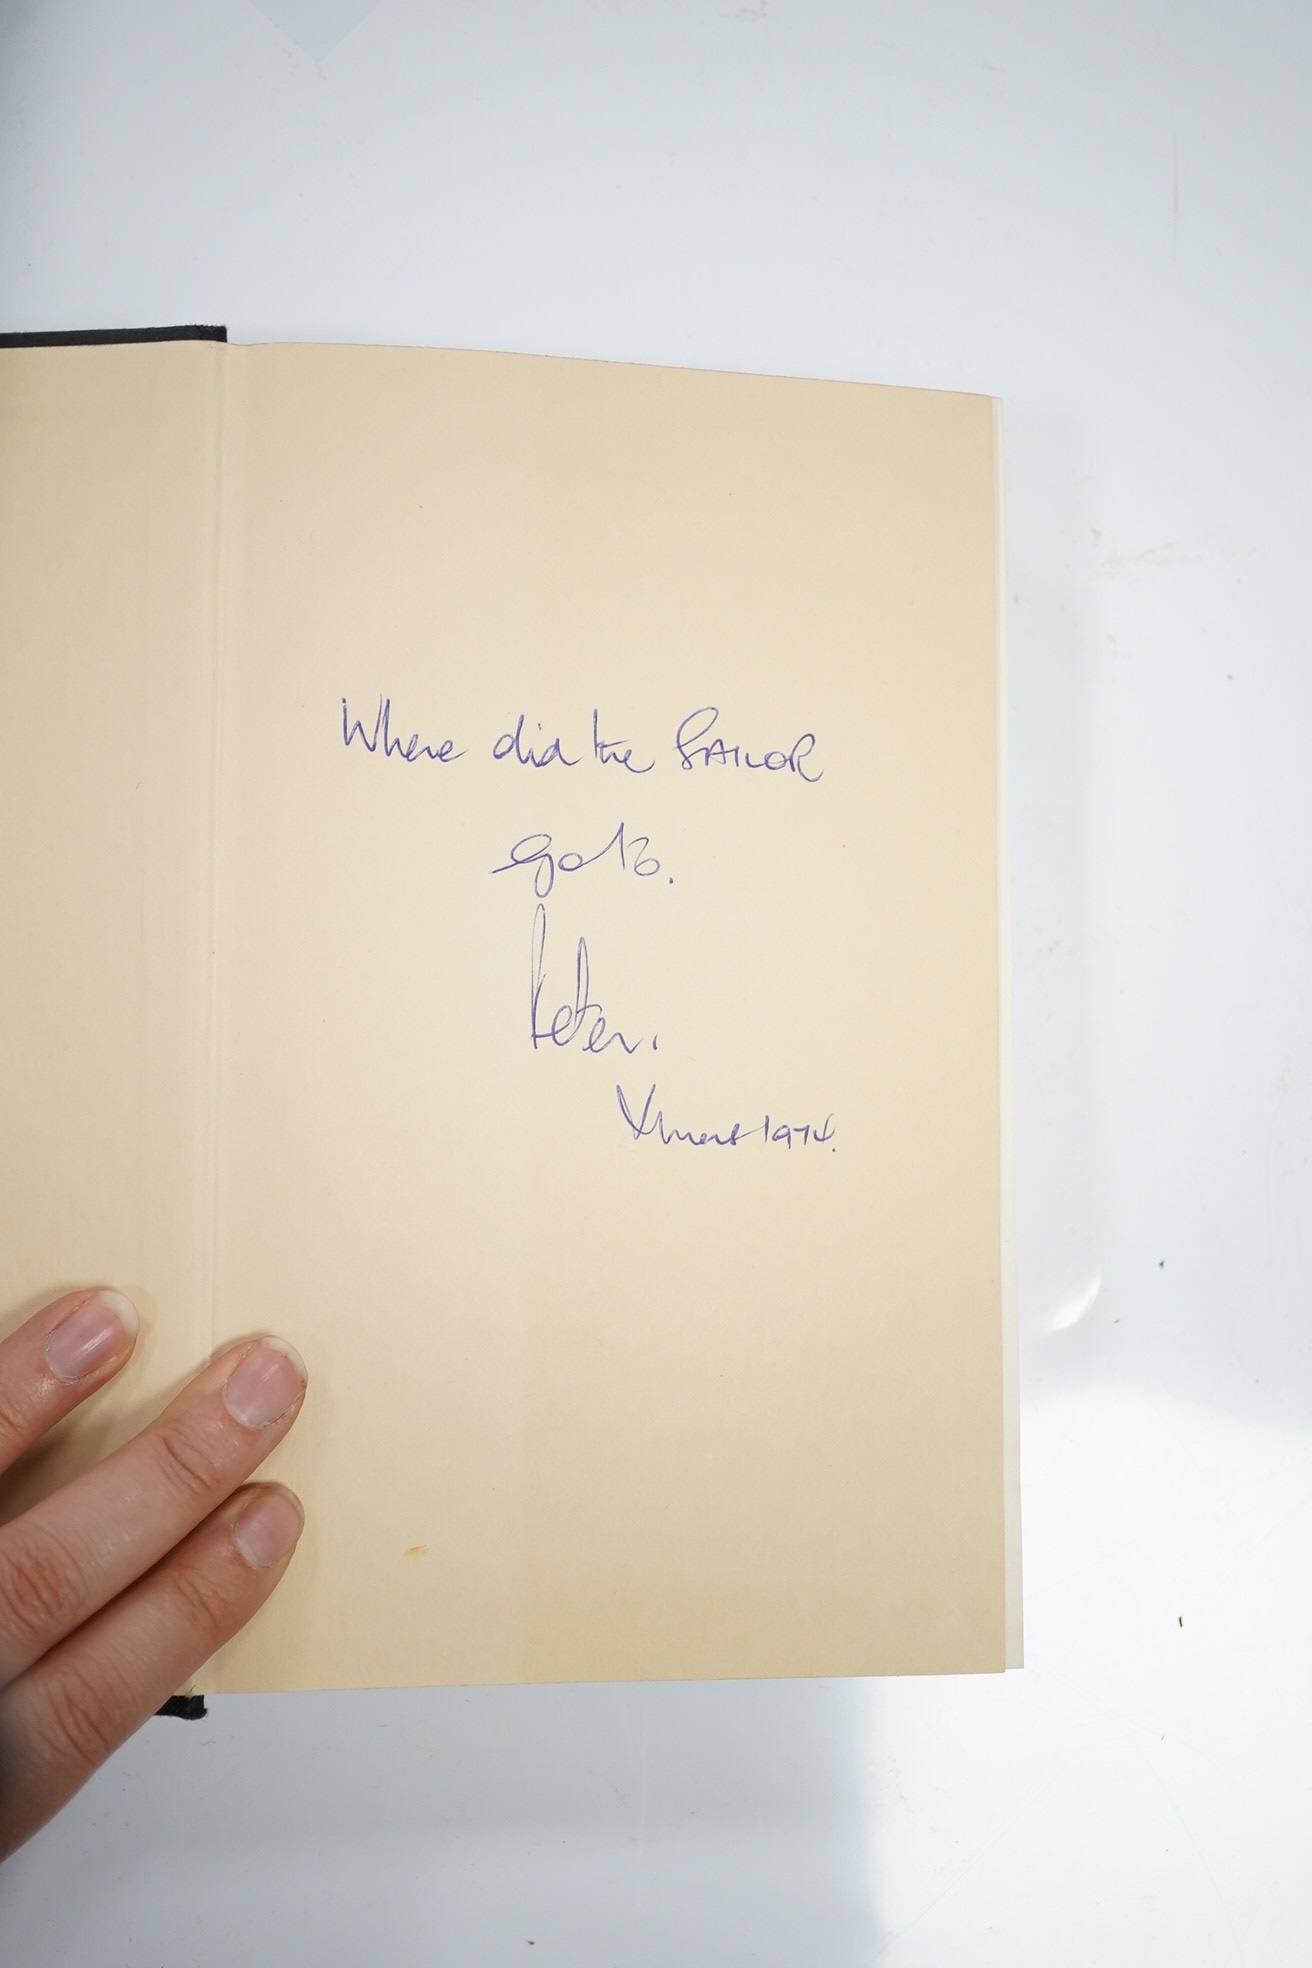 Where did the SAILOR
go to.
Peter.
Xmas 1974.